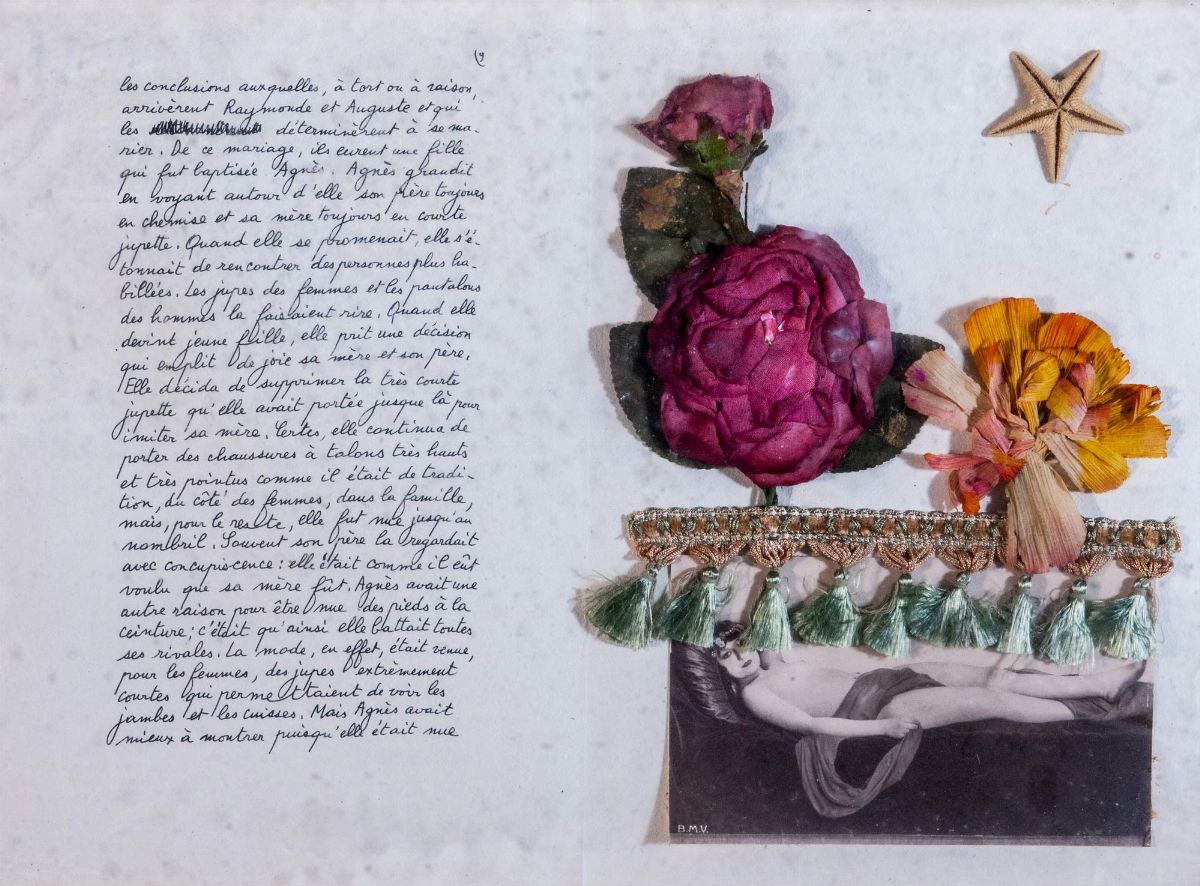 (9
les conclusions auxquelles, à tort ou à raison,
arrivèrent Raymonde et Auguste et qui
les déterminèrent à se ma-
rier. De ce mariage, ils eurent une fille
qui fut baptisée Agnès. Agnès grandit
en voyant autour d'elle son père toujours
en chemise et sa mère toujours en courte
jupette. Quand elle se promenait, elle s'é-
tonnait de rencontrer des personnes plus ha-
billées. Les jupes des femmes et les pantalons
des hommes la faisaient rire. Quand elle
devint jeune fille, elle prit une décision
qui emplit de joie sa mère et son père.
Elle décida de supprimer la très courte
jupette qu'elle avait portée jusque là pour
imiter sa mère. Certes, elle continua de
porter des chaussures à talons très hauts
et très pointus comme il était de tradi-
tion, du côté des femmes, dans la famille,
mais, pour le reste, elle fut nue jusqu'au
nombril. Souvent son père la regardait
avec concupiscence : elle était comme il eût
voulu que sa mère fût. Agnès avait une
autre raison pour être nue des pieds à la
ceinture; c'était qu'ainsi elle battait toutes
ses rivales. La mode, en effet, était venue,
pour les femmes, des jupes extrèmement
courtes qui permettaient de voir les
jambes et les cuisses. Mais Agnès avait
mieux à montrer puisqu'elle était nue
B.M.V.